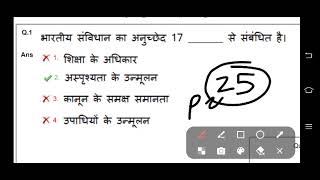 Q.1 भारतीय संविधान का अनुच्छेद 17 _______ से संबंधित है।
Ans 1. शिक्षा के अधिकार
2. अस्पृश्यता के उन्मूलन
3. कानून के समक्ष समानता
4. उपाधियों के उन्मूलन
25